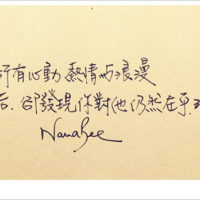 所有心動 熱情与浪漫
后.卻發現你對他仍然在乎.
NanaBee